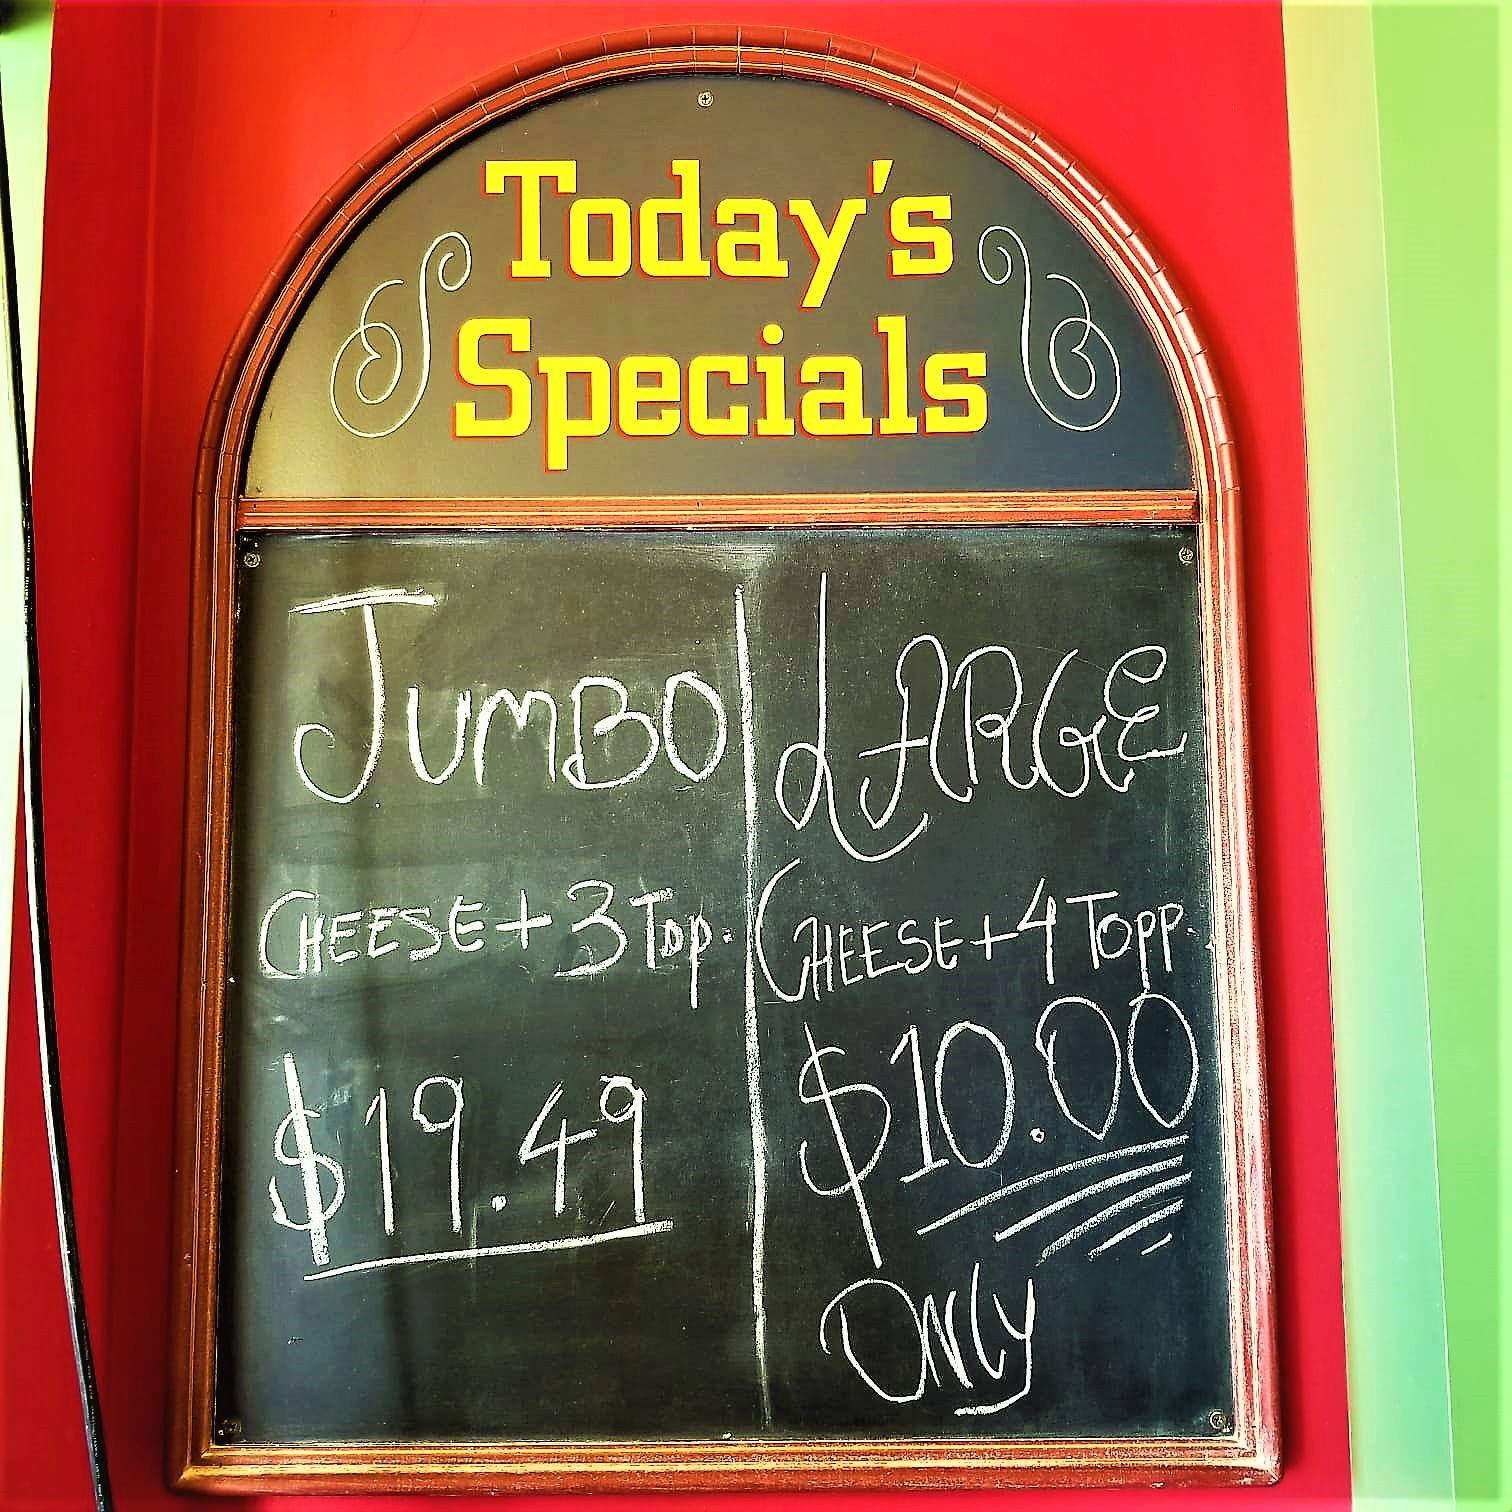 Today's
Specials
JUMBO
CHEESE + 3 TOP.
$19.49
LARGE
CHEESE + 4 TOPP.
$10.00
ONLY